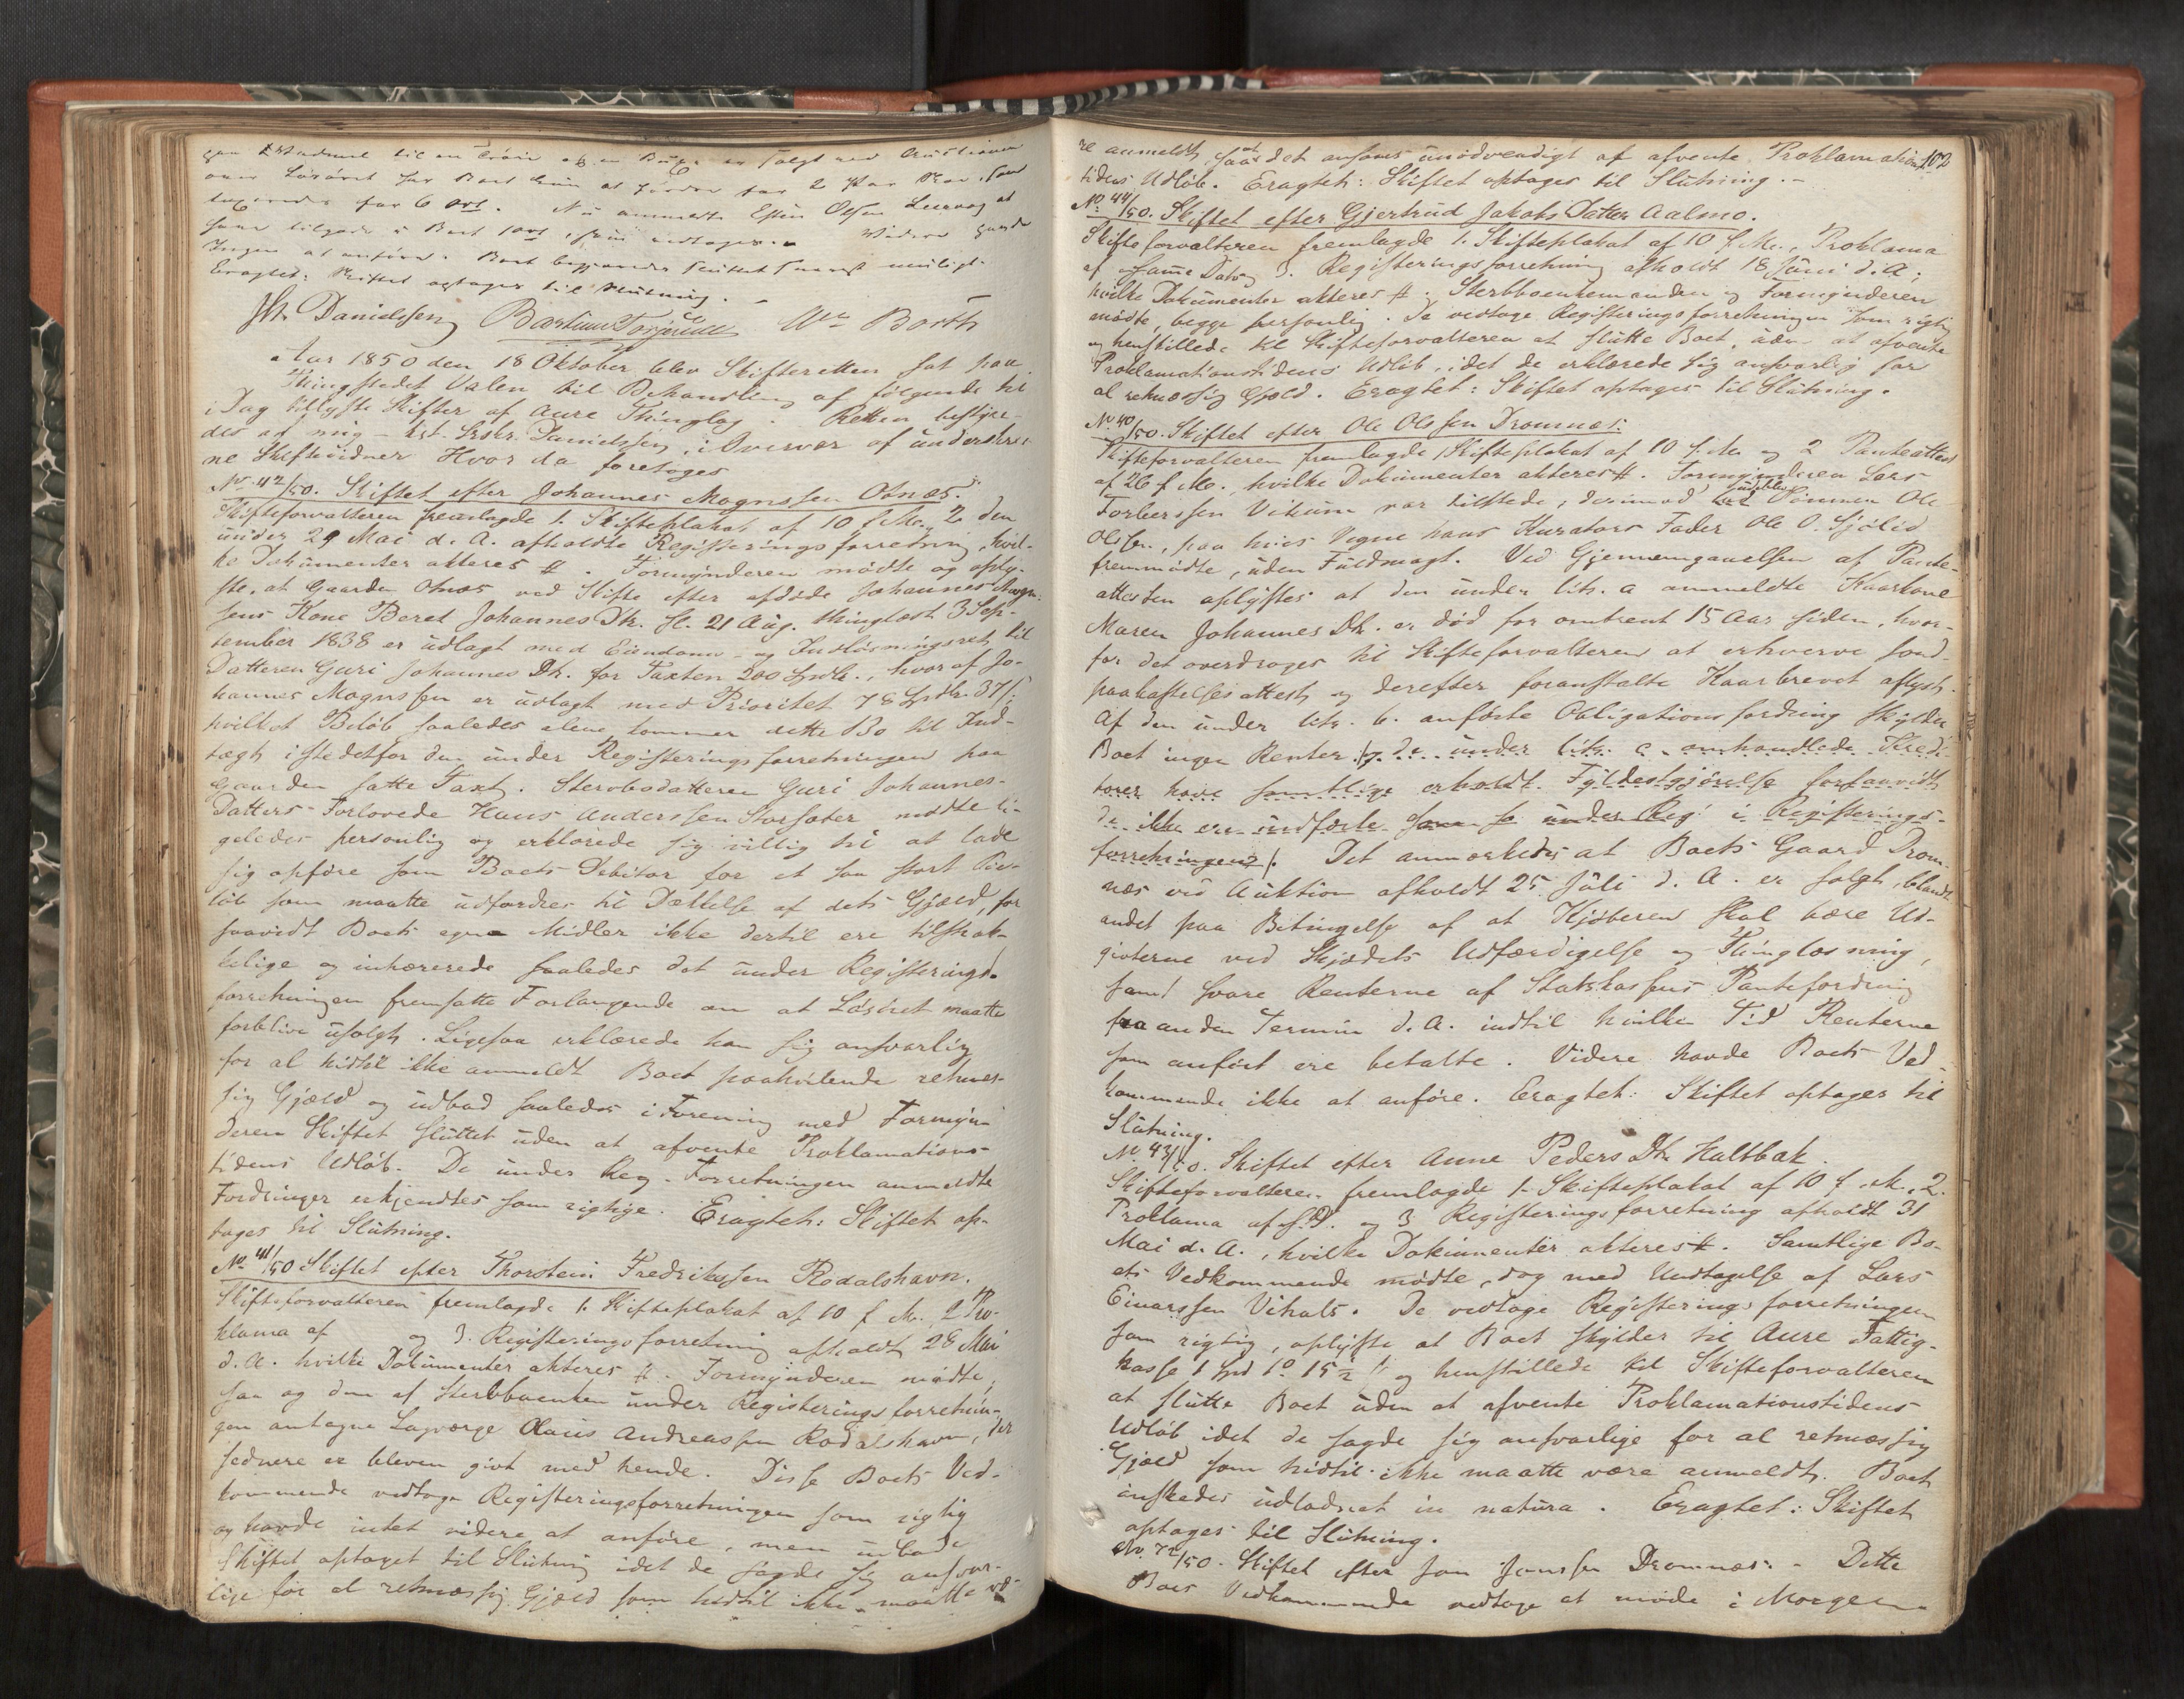 til en Trøie og en Buxe er solgt ved Auctionen
over Løsøret har Boet
for 6 ort. Nu anmeldte Esten Olsen Leervog at
have tilgode i Boet Videre havde
Ingen at anføre. Boet begjæredes sluttet snarest muligt.
Eragtet: Skiftet optages til Slutning. -
Danielssen Bastian Torjussen Barth
Aar 1850 den 18 Oktober blev Skifteretten sat paa
Thingstedet Valen til Behandling af følgende til
i Dag tillyste Skifter af Aure Thinglag. Retten bestyre-
des af mig - kst. Sorskr. Danielssen, i Overvær af underskrev-
ne Skiftevidner Hvor da foretoges
No. 42/50. Skiftet efter Johannes Magnssen Otnæs.
Skifteforvalteren fremlagde 1. Skifteplakat af 10 f. M., 2. den
under 29 Mai d. A. afholdte Registeringsforretning, hvil-
ke Dokumenter akteres #. Formynderen mødte og oply-
ste, at Gaarden Otnæs ved Skifte efter afdøde Johannes Magn-
sens Kone Beret Johannes Dtr. sl. 21 Aug. thinglæst 3 Sep-
tember 1838 er udlagt med Eiendoms- og Indløsningsret til
Datteren Guri Johannes Dtr. for Taxten 200 Spdlr., hvoraf Jo-
hannes Magnssen er udlagt med Prioritet 78 Spdlr. 37 s.
hvilket Beløb saaledes alene kommer dette Bo til Ind-
tægt istedetfor den under Registeringsforretningen paa
Gaarden satte Taxt. Sterbodatteren Guri Johannes-
Datters Forlovede Hans Anderssen Storsæter mødte li-
geledes personlig og erklærede sig villig til at lade
sig opføre som Boets Debitor for et saa stort Be-
løb som maatte udfordres til Dækkelse af dets Gjæld, for
saavidt Boets egne Midler ikke dertil ere tilstræk-
kelige og inhærerede saaledes det under Registerings-
forretningen fremsatte Forlangende om at Løsøret maatte
forblive usolgt. Ligesaa erklærede han sig ansvarlig
for al hidtil ikke anmeldt Boet paahvilende retmæs-
sig Gjæld og udbad saaledes i Forening med Formyn-
deren Skiftet sluttet uden at afvente Proklamations-
tidens Udløb. De under Reg. Forretningen anmeldte
Fordringer erkjendtes som rigtige. Eragtet: Skiftet op-
tages til Slutning.
No. 41/50 Skiftet efter Thorstein Fredrikssen Rodalshavn.
Skifteforvalteren fremlagde 1. Skifteplakat af 10 f. M., 2 Pro-
klama af og 3. Registeringsforretning afholdt 28 Mai
d. A. hvilke Dokumenter akteres #. Formynderen mødte,
saa og den af Sterbboenken under Registeringsforretnin-
gen antagne Lagværge Claus Andreassen Rodalshavn, der
sednere er bleven givt med hende. Disse Boets Ved-
kommende vedtoge Registeringsforretningen som rigtig
og havde intet videre at anføre, men udbade
Skiftet optaget til Slutning idet de sagde sig ansvar-
lige for al retmæssig Gjæld som hidtil ikke maatte væ-
102
re anmeldt, saa at det ansaaes unødvendigt at afvente Proklamations-
tidens Udløb. Eragtet: Skiftet optages til Slutning. -
No. 44/50. Skiftet efter Gjertrud Jakobs Datter Aalmo.
Skifteforvalteren fremlagde 1. Skifteplakat af 10 f. M., Proklama
af samme Dato, 3. Registeringsforretning afholdt 18 Juni d. A.;
hvilke Dokumenter akteres #. Sterbboenkemanden og Formynderen
mødte, begge personlig. De vedtoge Registeringsforretningen som rigtig
og henstillede til Skifteforvalteren at slutte Boet, uden at afvente
Proklamationstidens Udløb, idet de erklærede sig ansvarlig for
al retmæssig Gjæld. Eragtet: Skiftet optages til Slutning.
No. 40/50. Skiftet efter Ole Olssen Dromnæs:
Skifteforvalteren fremlagde 1 Skifteplakat af 10 f. M. og 2 Panteattest
af 26 f. M., hvilke Dokumenter akteres #. Formynderen Lars
Torberssen Vikum var tilstede; derimod udeblev Sønnen Ole
Olssen, paa hvis Vegne hans Kurators Fader Ole O. Sjølid
fremmødte, uden Fuldmagt. Ved Gjennemgaaelsen af Pante-
attesten oplystes at den under litr. a anmeldte Kaarkone
Maren Johannes Dtr. er død for omtrent 15 Aar siden, hvor-
for det overdroges til Skifteforvalteren at erhverve fond-
paahæftelsesattest og derefter foranstalte Kaarbrevet aflyst.
Af den under litr. b. anførte Obligationsfordring skylder
Boet ingen Renter. og de under litr. c omhandlede Kredi-
torer have samtlige erholdt Fyldestgjørelse forsaavidt
de ikke ere indførte under Reg i Registerings-
forretningen. Det anmærkedes at Boets Gaard Drom-
næs ved Auktion afholdt 25 Juli d. A. er solgt, blandt
andet paa Betingelse af at Kjøberen skal bære Ud-
givterne ved Skjødets Udfærdigelse og Thinglæsning,
samt svare Renterne af Statskassens Pantefordring
fra anden Termin d. A. indtil hvilken Tid Renterne
som anført ere betalte. Videre havde Boets Ved-
kommende ikke at anføre. Eragtet: Skiftet optages til
Slutning.
No. 43/50. Skiftet efter Anne Peders Dtr. Haltbak.
Skifteforvalteren fremlagde 1. Skifteplakat af 10 f. M., 2.
Proklama af s. D. og 3 Registeringsforretning afholdt 31
Mai d. A., hvilke Dokumenter akteres #. Samtlige Bo-
ets Vedkommende mødte, dog med Undtagelse af Lars
Einarssen Vihals. De vedtoge Registeringsforretningen
som rigtig, oplyste at Boet skylder til Aure Fattig-
kasse 1 Spd 1o 15½ s og henstillede til Skifteforvalteren
at slutte Boet uden at afvente Proklamationstidens
Udløb idet de sagde sig ansvarlige for al retmæssig
Gjæld som hidtil ikke maatte være anmeldt. Boet
ønskedes udlodnet in natura. Eragtet: Skiftet
optages til Slutning.
No. 72/50. Skiftet efter Jon Jonssen Dromnæs. - Dette
Boes Vedkommende vedtoge at møde i Morgen